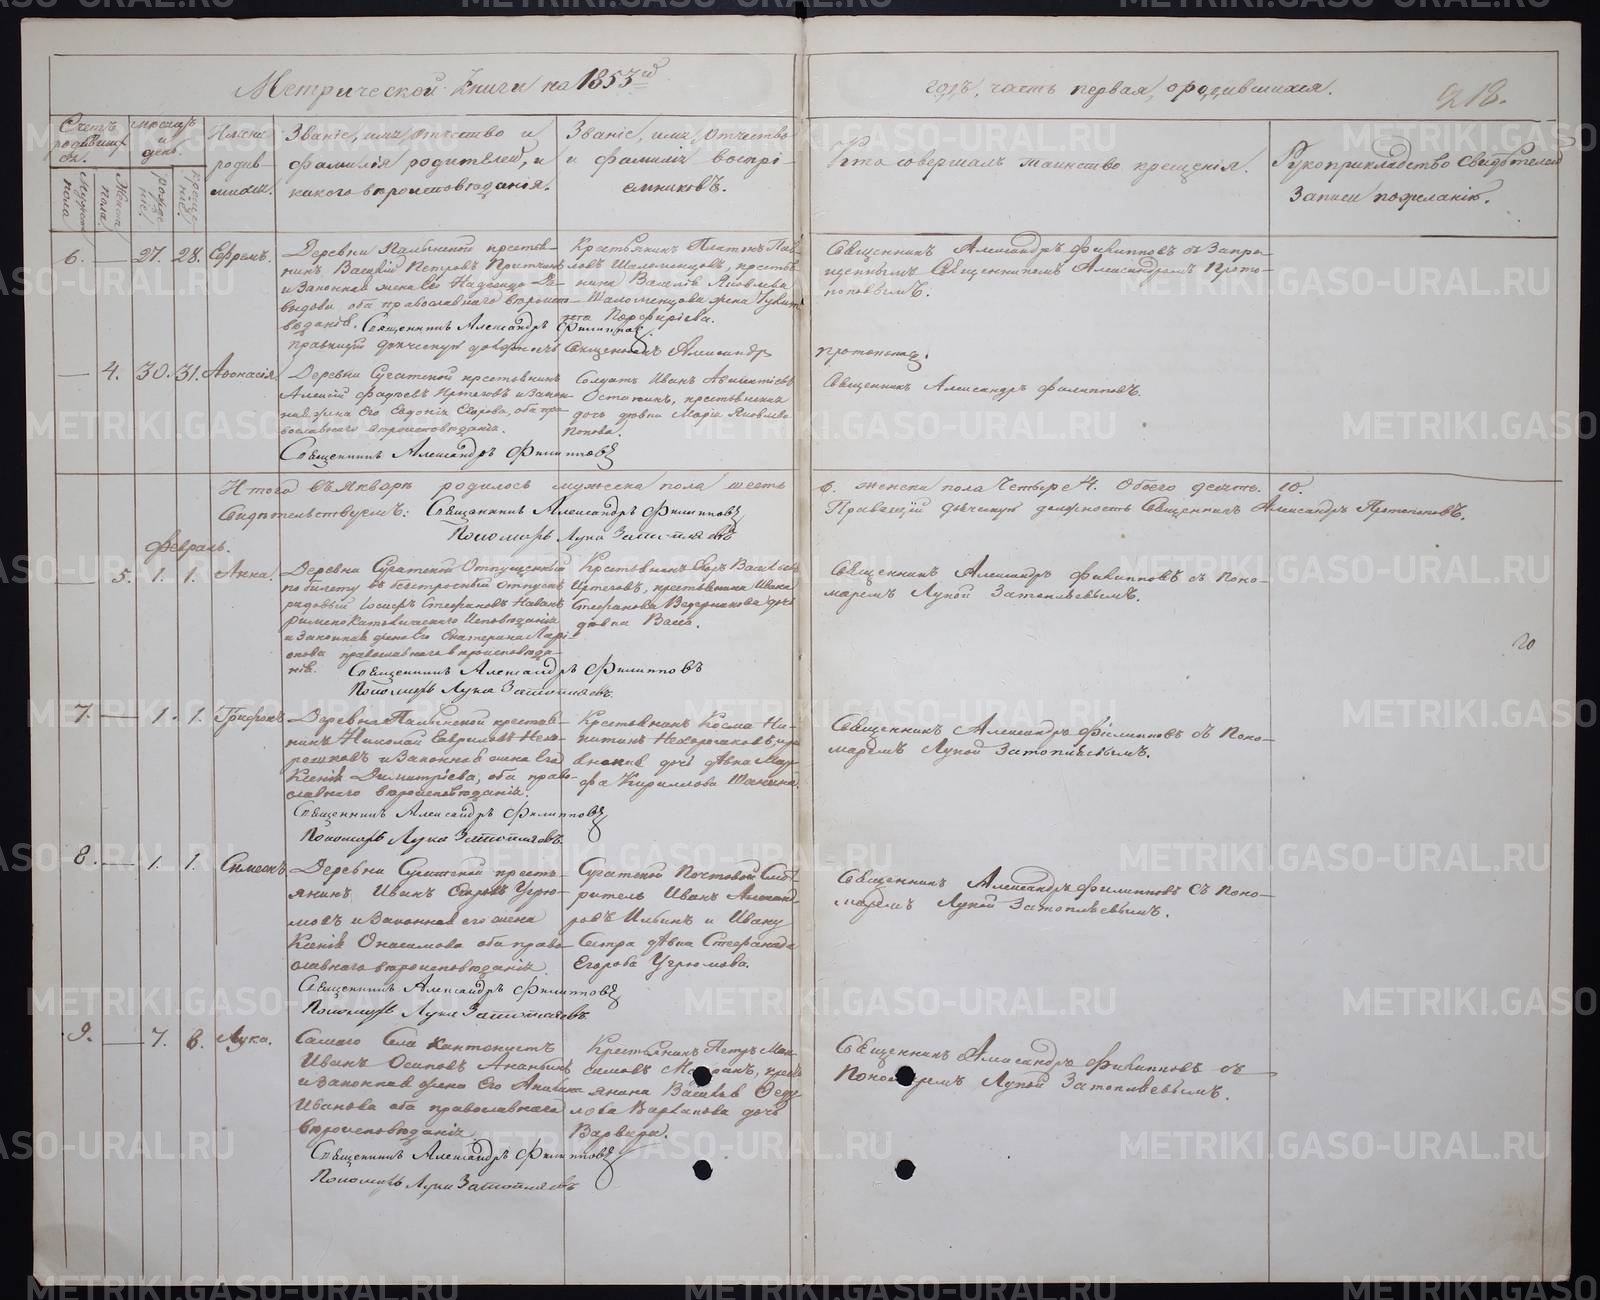 Метрической Книги на 1853й
годъ, часть первая, о родившихся.
218.
Счетъ родившихся.
мѣсяцъ и день.
Мужеска пола
Женска пола.
рожденіе.
крещеніе.
Имена родившихся.
Званіе, имя, отчество и
фамилія родителей, и
какого вѣроисповѣданія.
Званіе, имя, отчество
и фамилія воспрі-
емниковъ.
Кто совершалъ таинство крещенія.
Рукоприкладство свидѣтелей
записи по желанію.
6. — 27. 28. Ефремъ.
Деревни крестья-
нинъ Василій Петровъ
и законная жена его Надежда Да-
выдова оба православнаго вѣроиспо-
вѣданія. Священникъ Александръ Филипповъ.
Правящій дьяческую должность Священникъ Александръ
Протопоповъ.
Крестьянинъ Платонъ Пав-
ловъ Шаломенцовъ, крестья-
нина Василія Яковлева
Шаломенцова жена
Порфирьева.
Священникъ Александръ Филипповъ съ Запре-
щеннымъ Священникомъ Александромъ Прото-
поповымъ.
— 4. 30. 31. Аѳонасія.
Деревни Сугатской крестьянинъ
Алексій Фадѣевъ Иртеговъ и закон-
ная жена его Евдокія Егорова, оба пра-
вославнаго вѣроисповѣданія.
Священникъ Александръ Филипповъ
Солдатъ Иванъ
Останинъ, крестьянская
дочь дѣвка Марія Яковлева
Попова.
Священникъ Александръ Филипповъ.
Итого въ Январѣ родилось мужеска пола шесть
6. женска пола Четыре 4. Обоего десять. 10.
Свидѣтельствуемъ: Священникъ Александръ Филипповъ
Правящій дьяческую должность Священникъ Александръ Протопоповъ.
Пономарь Лука Затопляевъ
Февраль.
— 5. 1. 1. Анна.
Деревни Сугатской Отпущенный
по билету въ безсрочный отпускъ
рядовый Іосифъ Стефановъ
Римскокатолическаго Исповѣданія
и законная жена его Екатерина Ларі-
онова православнаго вѣроисповѣда-
нія. Священникъ Александръ Филипповъ
Пономарь Лука Затопляевъ.
Крестьянинъ Егоръ Васильевъ
Иртеговъ, крестьянина Ивана
Стефанова Ведерникова дочь
дѣвка Васса.
Священникъ Александръ Филипповъ съ Поно-
маремъ Лукой Затопляевымъ.
20
7. — 1. 1. Трифонъ.
Деревни крестья-
нинъ Николай Гавриловъ Нехо-
рошковъ и законная жена его
Ксенія Димитріева, оба право-
славнаго вѣроисповѣданія.
Священникъ Александръ Филипповъ
Пономарь Лука Затопляевъ.
Крестьянинъ Косма Ни-
китинъ Нехорошковъ,
дочь дѣвка Мар-
фа Кириллова Шанина.
Священникъ Александръ Филипповъ съ Поно-
маремъ Лукой Затопляевымъ.
8. — 1. 1. Симеонъ.
Деревни Сугатской кресть-
янинъ Иванъ Егоровъ Угрю-
мовъ и законная его жена
Ксенія Онисимова оба право-
славнаго вѣроисповѣданія.
Священникъ Александръ Филипповъ
Пономарь Лука Затопляевъ.
Сугатской Почтовой Смо-
тритель Иванъ Александ-
ровъ Ильинъ и Ивану
сестра дѣвка Стефанида
Егорова Угрюмова.
Священникъ Александръ Филипповъ съ Поно-
маремъ Лукой Затопляевымъ.
9. — 7. 8. Лука.
Самаго Села кантонистъ
Иванъ Осиповъ Ананьинъ
и законная жена его
Иванова оба православнаго
вѣроисповѣданія.
Священникъ Александръ Филипповъ
Пономарь Лука Затопляевъ
Крестьянинъ Петръ Мак-
симовъ кресть-
янина Василья Ѳеду-
лова Варлакова дочь
Варвара.
Священникъ Александръ Филипповъ съ
Пономаремъ Лукой Затопляевымъ.
METRIKI.GASO-URAL.RU